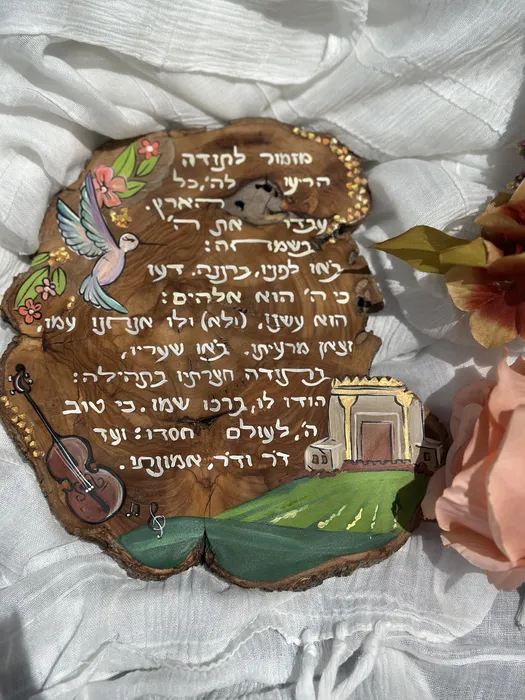 מזמור לתודה
הריעו לה', כל
הארץ.
עבדו את ה'
בשמחה:
בֹּאו לפניו, ברננה. דעו
כי ה' הוא אלהים:
הוא עשנו, (ולא) ולו אנחנו עמו
וצאן מרעיתו. בֹּאו שעריו,
בתודה חצרתיו בתהילה:
הודו לו, ברכו שמו. כי טוב
ה', לעולם חסדו: ועד
דֹר ודֹר, אמונתו.